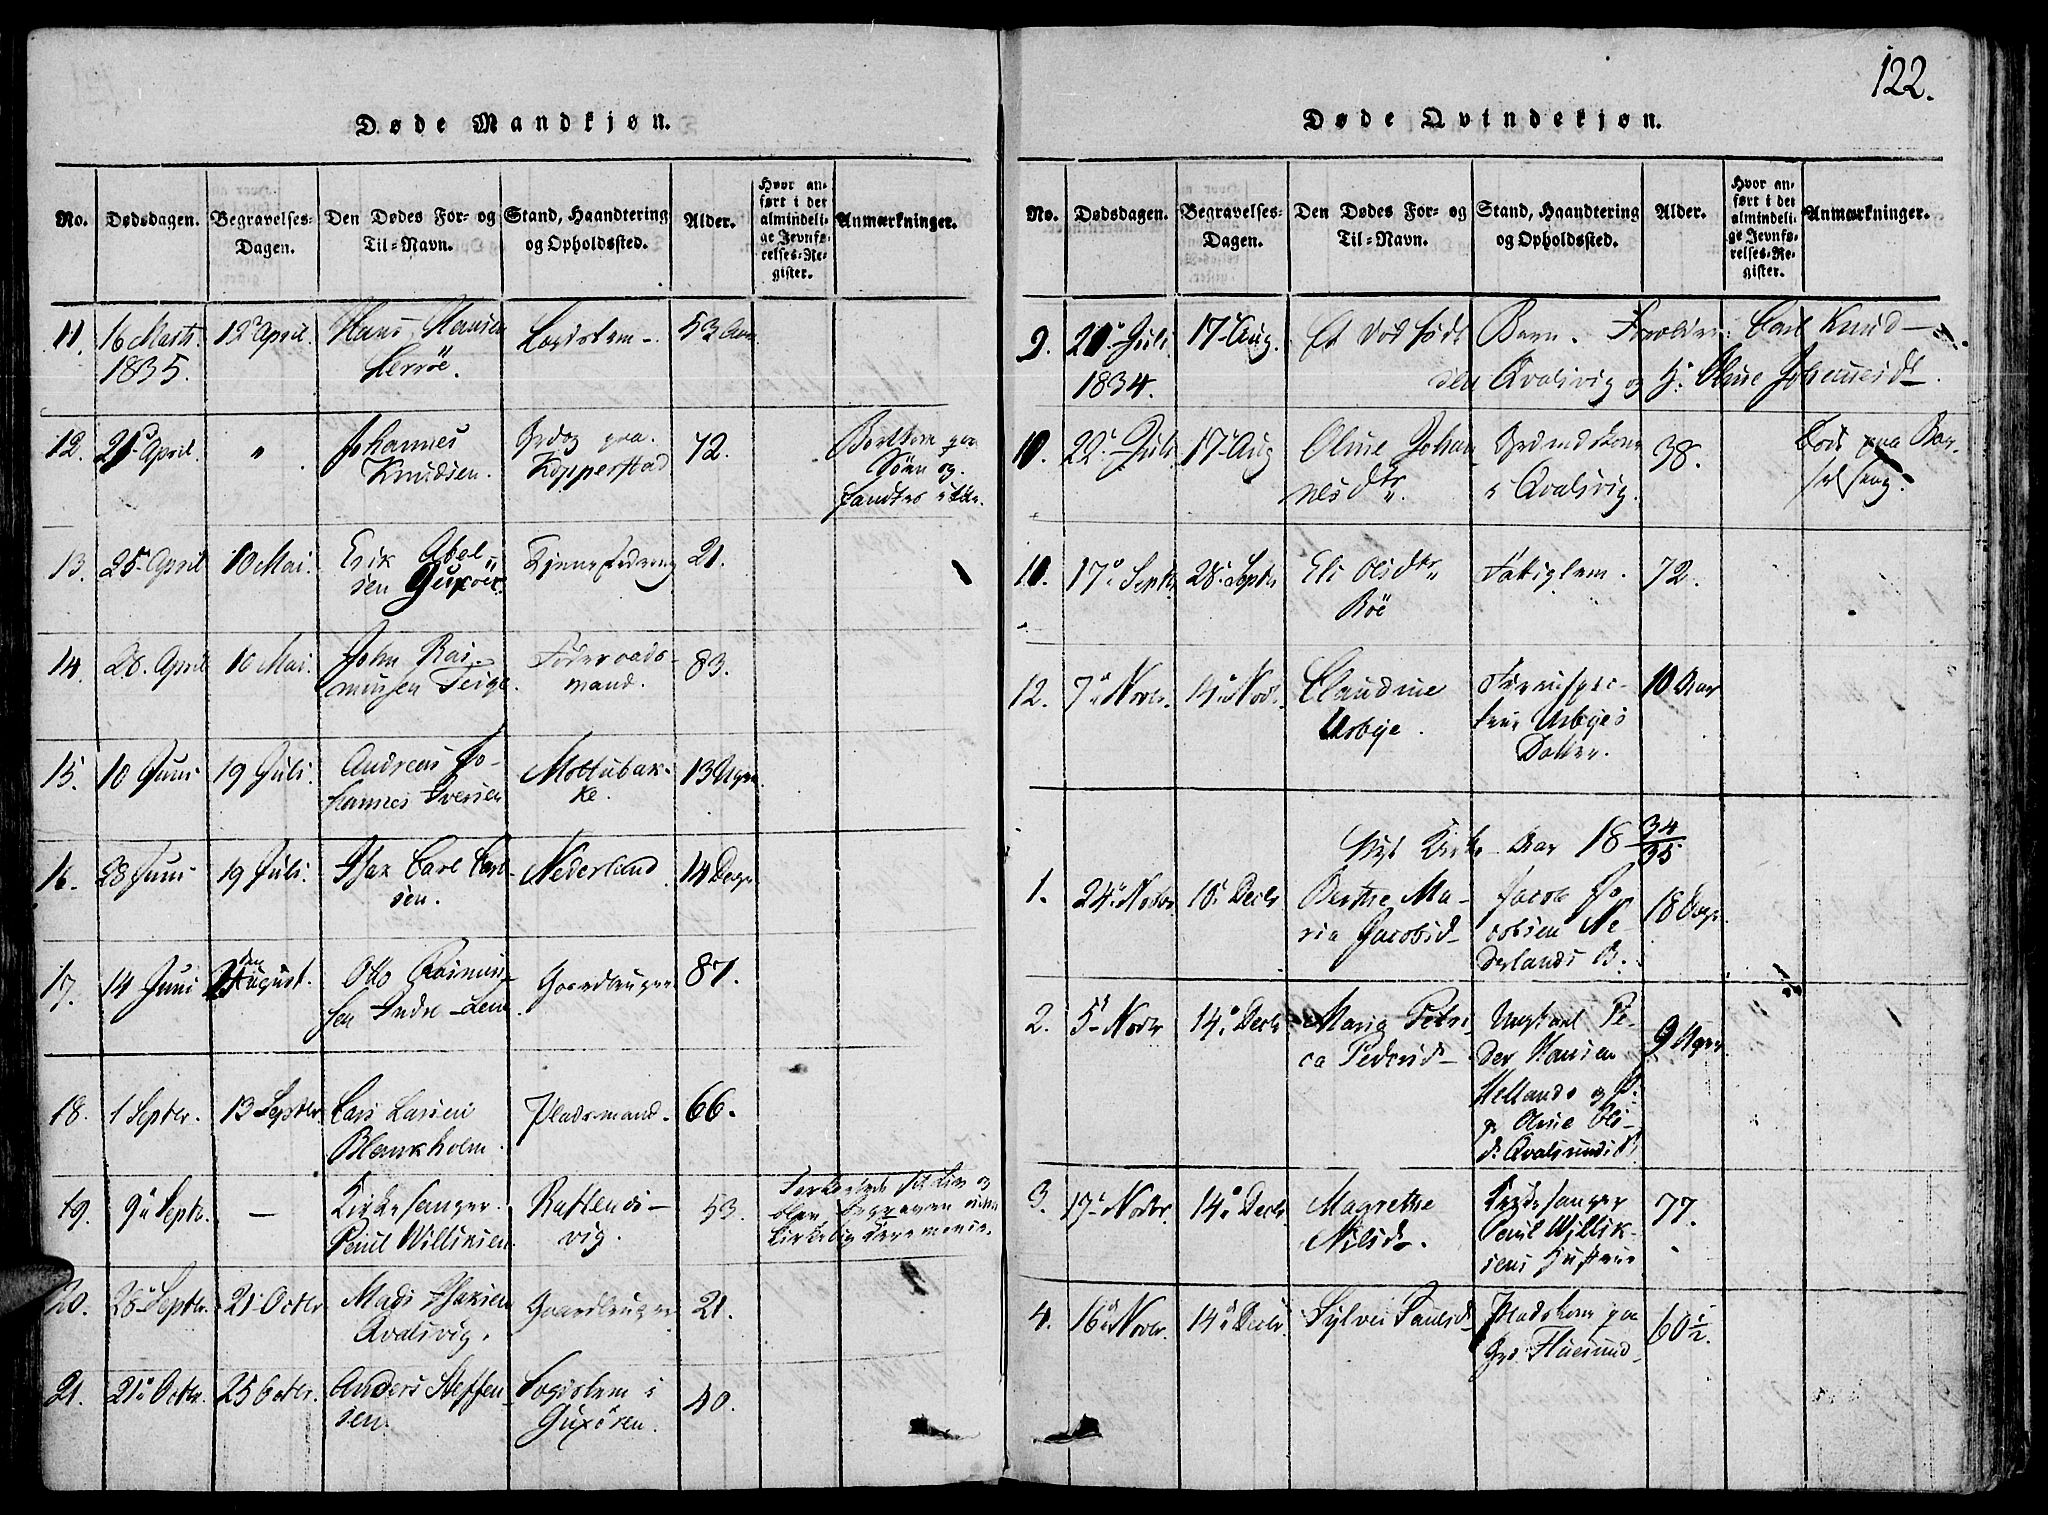 122.
Døde Mandkjøn.
No. Dødsdagen. Begravelses-Dagen. Den Dødes For- og Til-Navn. Stand, Haandtering og Opholdssted. Alder. Hvor anført i det almindelige Jevnførelses-Register. Anmærkninger.
11. 16 Marts 1835. 12 April. Hans Hansen Herröe. Logislem 53 Aar
12. 21 April. " Johannes Knudsen. Kopperstad 72. Söen og
13. 25 April 10 Mai. Erik Abelsen Guxöer. 21.
14. 28. April 10 Mai. John Rasmussen Teige. Föderaadsmand. 83.
15. 10 Juni 19 Juli. Andreas Johannes Iversen Mollubakke. 13 Uger
16. 28 Juni 19 Juli. Isak Carl Carlsen. Nederland 14 Dage
17. 14 Juni August. Otto Rasmussen Indre-Lene Gaardbruger 87.
18. 1 Septbr. 13 Septbr. Lars Larsen Blankholm. Pladsmand. 66.
19. 9 Septr. — Kirkesanger Poul Williksen Rattensvig. 53. begraven uden Kirkelig Ceremonie.
20. 28 Septbr. 21 Octbr Mads Isaksen Qvalsvig. Gaardbruger 21.
21. 21 Octbr. 25 Octbr. Anders Steffensen. Logislem i Guxören. 40.
Døde Qvindekjøn.
No. Dødsdagen. Begravelses-Dagen. Den Dødes For- og Til-Navn. Stand, Haandtering og Opholdssted. Alder. Hvor anført i det almindelige Jevnførelses-Register. Anmærkninger.
9. 21 Juli 1834. 17 Aug. Et dödfödt Barn. Forældre: Carl Knud-
sen Qvalsvig og H: Oline Johannesdr.
10. 22 Juli 17 Aug Oline Johannesdtr. Qvalsvig. 38. Död paa Barselseng.
11. 17 Septr 28 Septr Eli Olsdtr Böe Fattiglem. 72.
12. 7 Novbr. 14 Novbr. Claudine Aasbye. Datter. 10 Aar
Nyt Kirke Aar 18 34/35
1. 24 Novbr 15 Decbr Berthe Maria Jacobsd Jacob Jacobsen Nederlands B. 18 Dage
2. 5 Novbr 14 Decbr Maria Petrica Pedersd Ungkarl Peder Hansen Hellands og P. Oline Olsd. Qvalsunds B. 9 Uger
3. 17 Novbr. 14 Decbr Magrethe Nilsd. Kirkesanger Poul Williksens Hustrue 77.
4. 16 Novbr. 14 Decbr. Sylvei Paulsd Pladskone paa Flaesund 60 1/2.